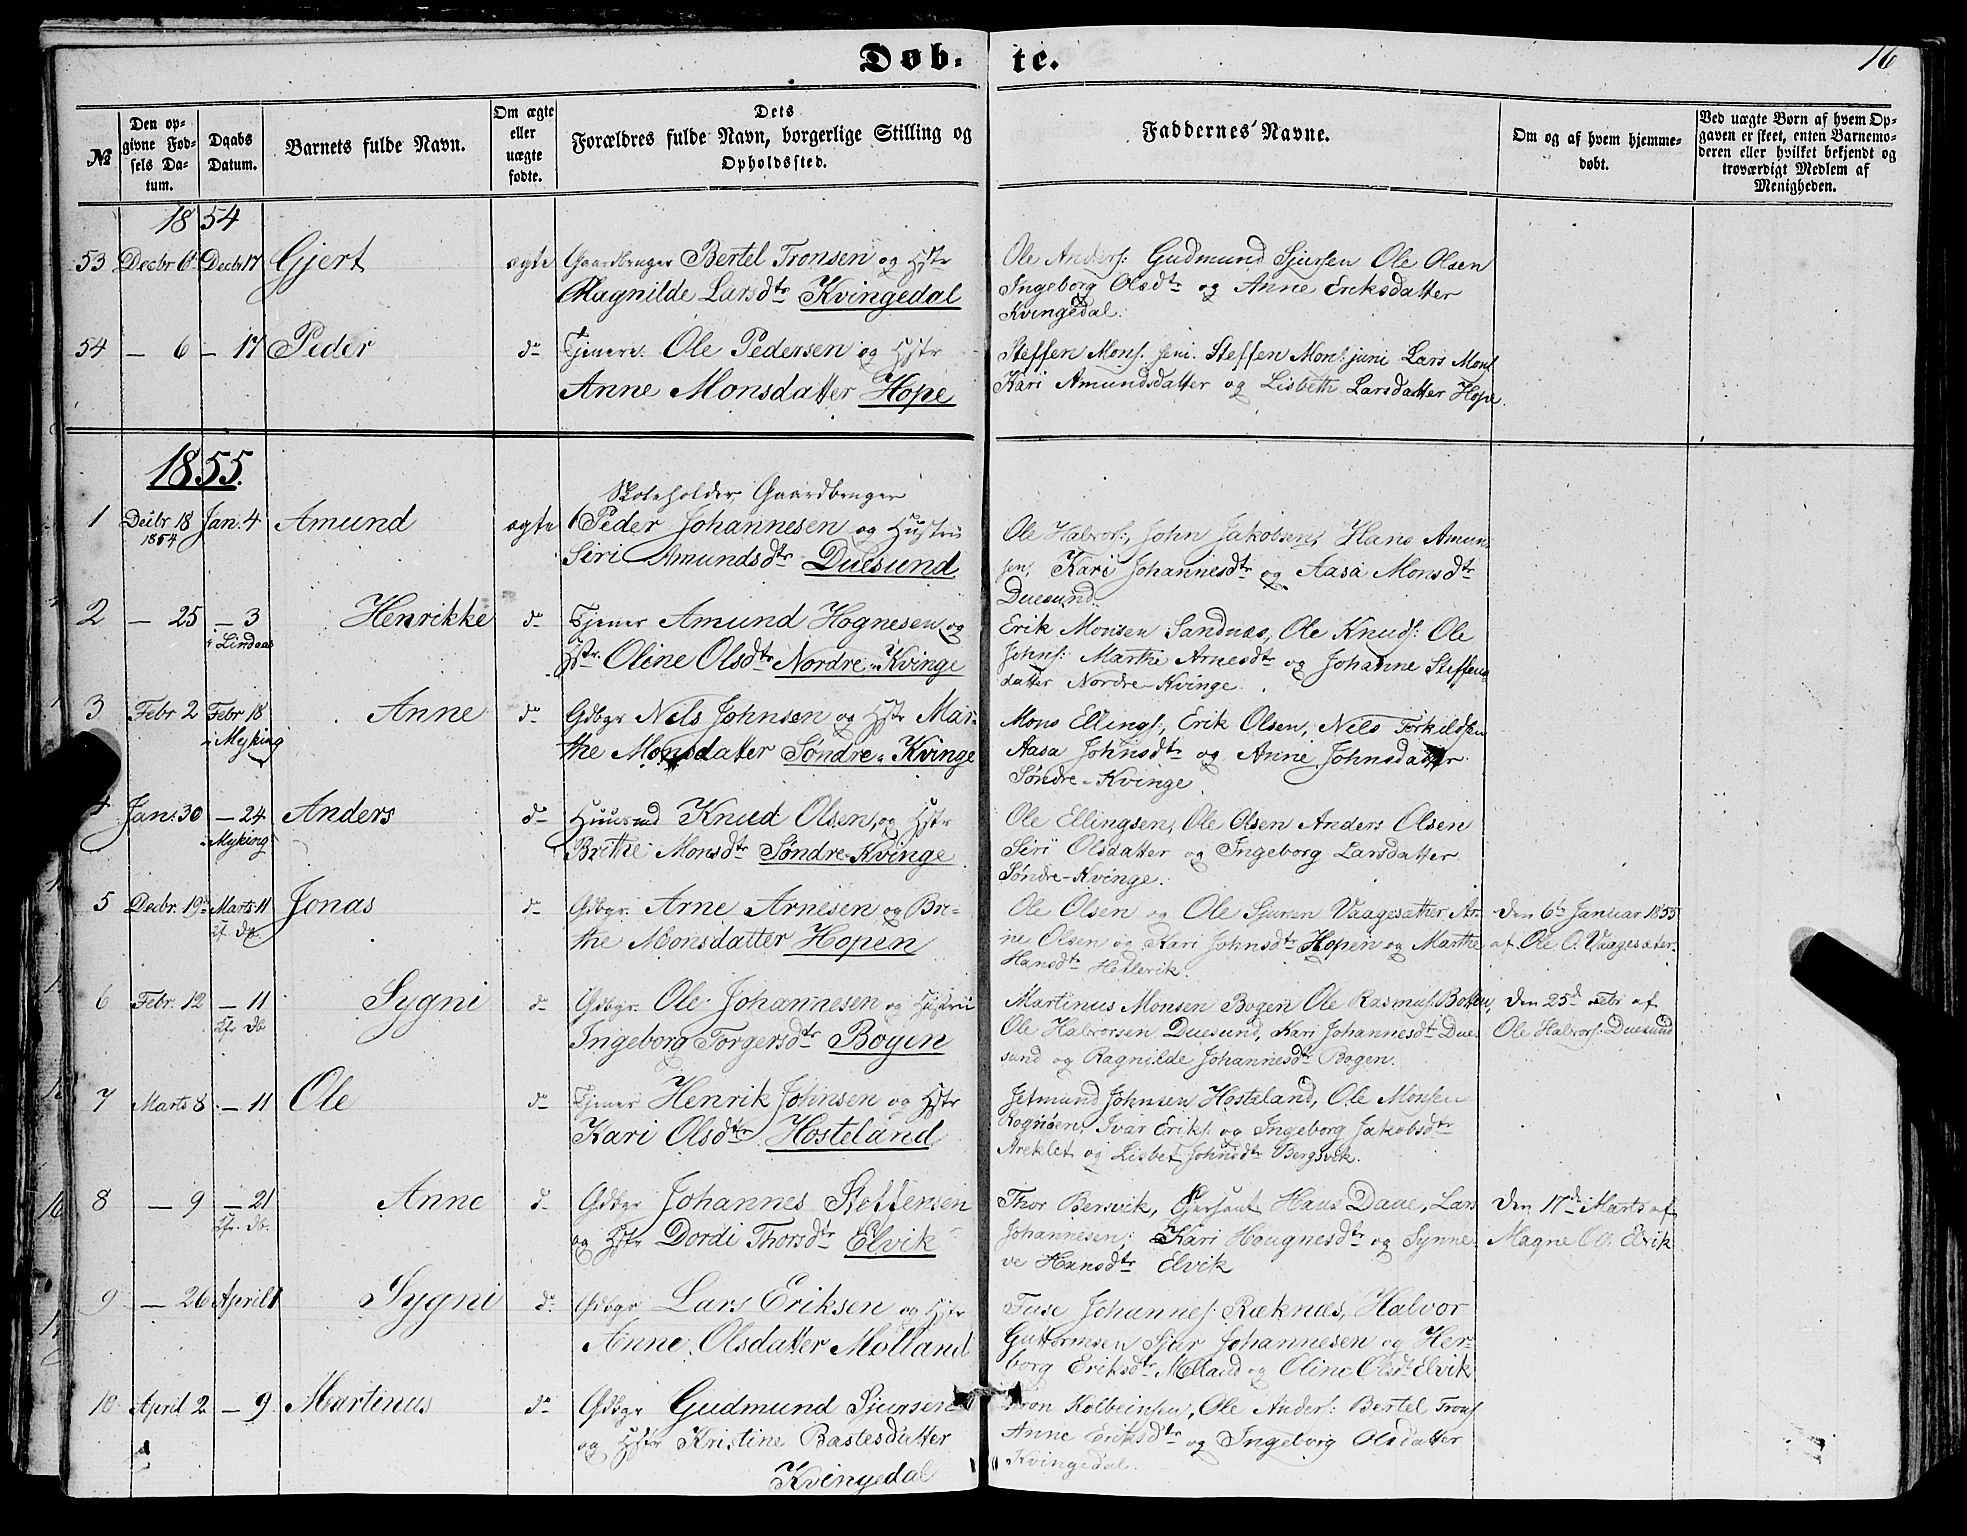 Døb- te.
16
№
Den op-
givne Fød-
sels Da-
tum.
Daabs
Datum.
Barnets fulde Navn.
Om ægte
eller
uægte
fødte.
Dets
Forældres fulde Navn, borgerlige Stilling og
Opholdssted.
Faddernes Navne.
Om og af hvem hjemme-
døbt.
Ved uægte Børn af hvem Op-
gaven er skeet, enten Barnemo-
deren eller hvilket bekjendt og
troværdigt Medlem af
Menigheden.
1854
53 Decbr 6 Decbr 17 Gjert ægte Gaardbruger Bertel Tronsen og Hstr
Ragnilde Larsdtr Kvingedal
Ole Anders: Gudmund Sjursen Ole Olsen
Ingeborg Olsdtr og Anne Eriksdatter
Kvingedal.
54 — 6 — 17 Peder do Tjener. Ole Pedersen og Hstr
Anne Monsdatter Hope
Steffen Mons. seni. Steffen Mons: juni Lars Mons
Kari Amundsdatter og Lisbeth Larsdatter Hope.
1855.
Skoleholder, Gaardbruger
1 Decbr 18 Jan: 4 Amund ægte Peder Johannesen og Hustru
1854
Siri Amundsdtr Duesund
Ole Halvors:, John Jakobsen, Hans Amund
sen, Kari Johannesdtr og Aasa Monsdtr
Duesund.
2 — 25 — 3 Henrikke do Tjener Amund Hognesen og
i Lindaas
Hstr. Oline Olsdtr Nordre-Kvinge
Erik Monsen Sandnæs, Ole Knuds: Ole
Johns: Marthe Arnesdtr og Johanne Steffens
datter Nordre-Kvinge.
3 Febr 2 Febr 18 Anne do Gdbgr Nils Johnsen og Hstr Mar-
i Myking
the Monsdatter Søndre-Kvinge
Mons Ellings:, Erik Olsen, Nils Torkildsen
Aasa Johnsdtr og Anne Johnsdatter
Søndre-Kvinge.
4 Jan: 30 — 24 Anders do Huusmd Knud Olsen, og Hstr
i Myking
Brithe Monsdtr Søndre-Kvinge
Ole Ellingsen, Ole Olsen Anders Olsen
Siri Olsdatter og Ingeborg Larsdatter
Søndre-Kvinge.
5 Decbr. 19 Marts 11 Jonas do Gdbgr. Arne Arnesen og Bri-
the Monsdatter Hopen
Ole Olsen og Ole Sjursen Vaagesæther Ar-
ne Olsen og Kari Johnsdtr Hopen og Marthe
Hansdtr Hetlevik.
Den 6te Januar 1855
af Ole O. Vaagesæter.
6 Febr. 12 — 11 Sygni do Gdbgr. Ole Johannesen og Hustru
Ingeborg Torgersdtr Bogen
Martinus Monsen Bogen Ole Rasmus: Botten,
Ole Halvorsen Duesund, Kari Johannesdtr Due-
sund og Ragnilde Johannesdtr Bogen.
Den 25d Febr af
Ole Halvors: Duesund
7 Marts 8 — 11 Ole do Tjener Henrik Johnsen og Hstr
Kari Olsdtr Hosteland
Jetmund Johnsen Hosteland, Ole Monsen
Rognøen, Ivar Eriks. og Ingeborg Jakobsdtr
Areklet og Lisbet Johnsdtr Bergsvik.
8 — 9 — 21 Anne do Gdbgr Johannes Steffensen
og Hstr Dordi Thorsdtr Elvik
Thor Bersvik, Hans Daae, Lars
Johannesen: Kari Hougnesdtr og Synne-
ve Hansdtr Elvik
Den 17de Marts af
Magne O. Elvik
9 — 26 April 1 Sygni do Gdbgr Lars Eriksen og Hstr
Anne Olsdatter Molland
Tuse Johannes: Ræknæs, Halvor
Guttormsen Sjur Johannesen og Her-
borg Eriksdtr Molland og Oline Olsdt Elvik
10 April 2 — 9 Martinus do Gdbgr Gudmund Sjursen
og Hstr Kristine Bastesdatter
Kvingedal
Tron Kolbeinsen, Ole Anders: Bertel Trons
Anne Eriksdtr og Ingeborg Olsdatter
Kvingedal.